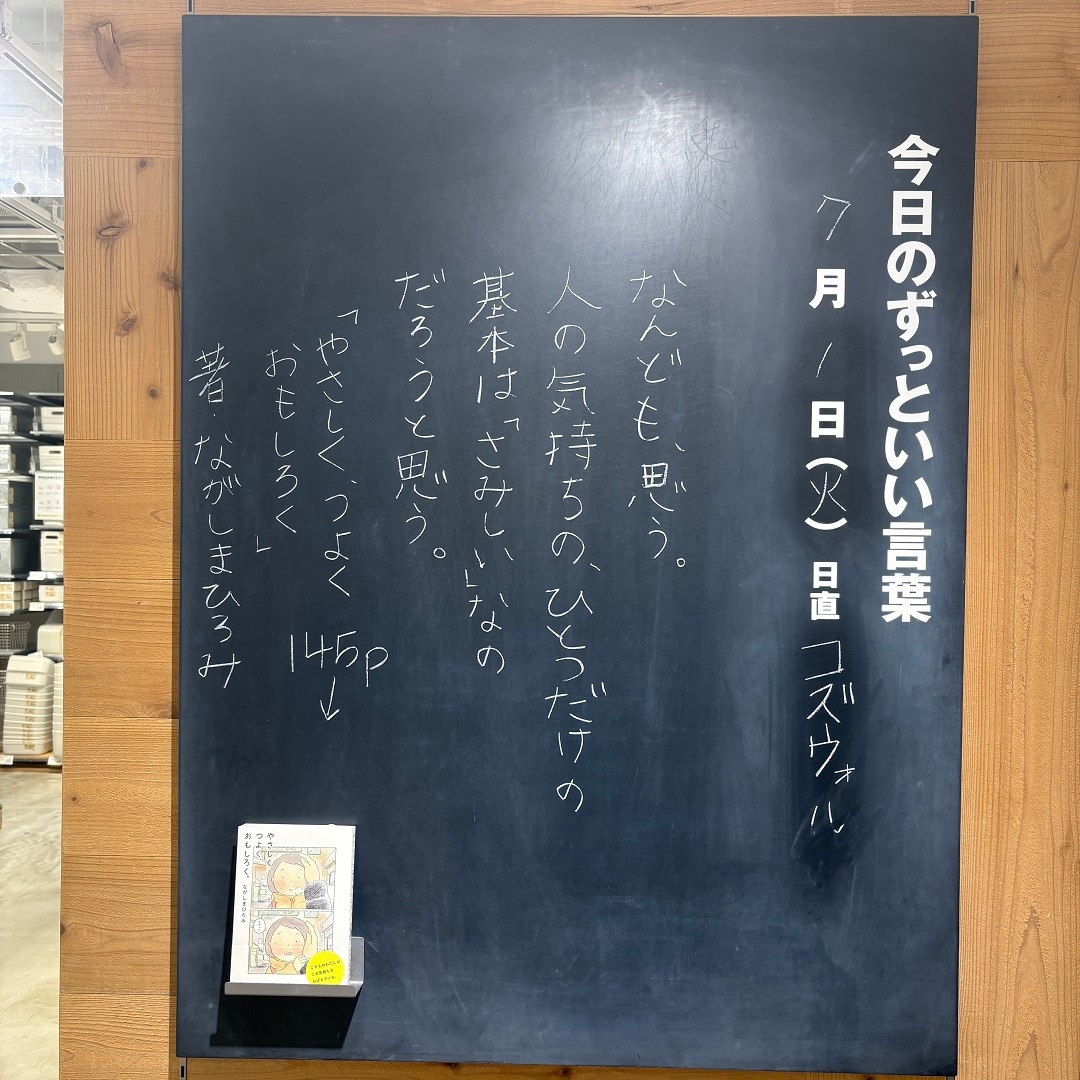 今日のずっといい言葉
7月1日(火)日直 コズウォル
なんども、思う。
人の気持ちの、ひとつだけの
基本は「さみしい」なの
だろうと思う。
「やさしく、つよく
おもしろく」
145p↓
著・ながしまひろみ
やさしく
つよく
おもしろく。
ながしまひろみ